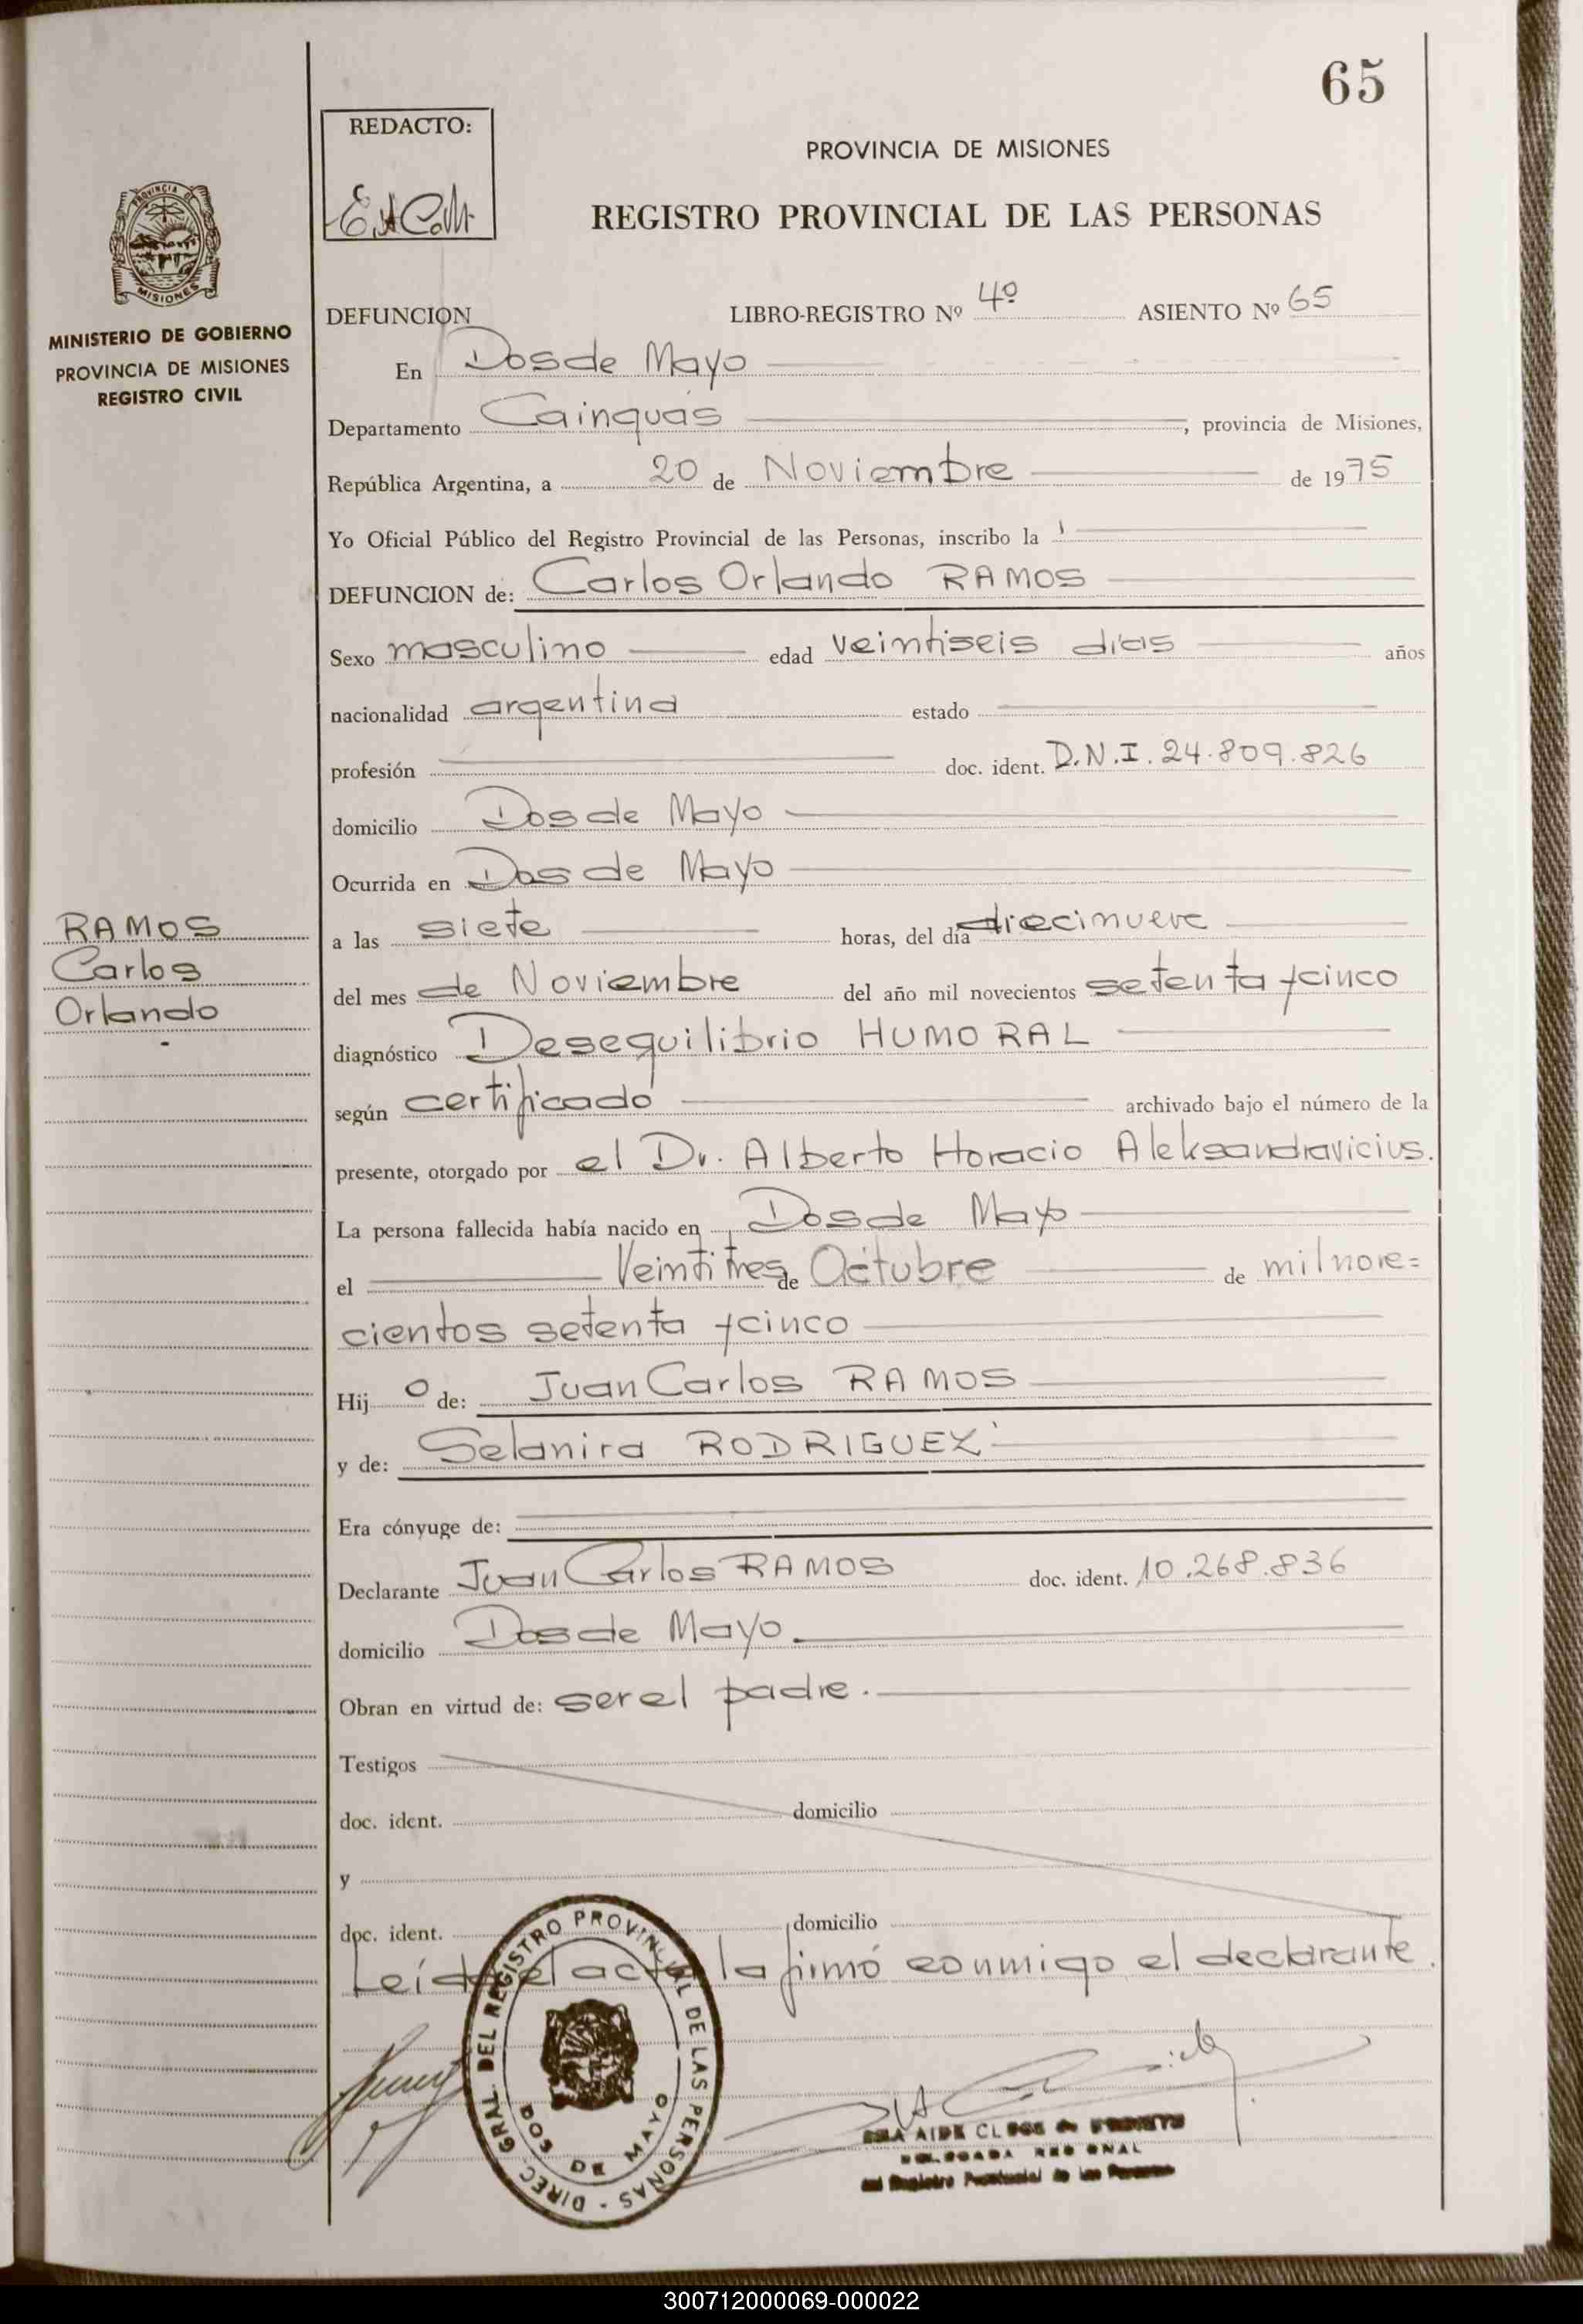 65
REDACTO:
PROVINCIA DE MISIONES
REGISTRO PROVINCIAL DE LAS PERSONAS
PROVINCIA DE
MISIONES
MINISTERIO DE GOBIERNO
PROVINCIA DE MISIONES
REGISTRO CIVIL
DEFUNCION LIBRO-REGISTRO Nº 4º ASIENTO Nº 65
En Dos de Mayo
Departamento Cainguás, provincia de Misiones,
República Argentina, a 20 de Noviembre de 1975
Yo Oficial Público del Registro Provincial de las Personas, inscribo la
DEFUNCION de: Carlos Orlando RAMOS
Sexo masculino edad veintiseis días años
nacionalidad argentina estado
profesión doc. ident. D.N.I. 24.809.826
domicilio Dos de Mayo
Ocurrida en Dos de Mayo
RAMOS
Carlos
Orlando
a las siete horas, del día diecinueve
del mes de Noviembre del año mil novecientos setenta y cinco
diagnóstico Desequilibrio HUMORAL
según certificado archivado bajo el número de la
presente, otorgado por el Dr. Alberto Horacio Aleksandravicius.
La persona fallecida había nacido en Dos de Mayo
el Veintitres de Octubre de mil nove=
cientos setenta y cinco
Hij o de: Juan Carlos RAMOS
y de: Selanira RODRIGUEZ
Era cónyuge de:
Declarante Juan Carlos RAMOS doc. ident. 10.268.836
domicilio Dos de Mayo.
Obran en virtud de: ser el padre.
Testigos
doc. ident. domicilio
y
doc. ident. domicilio
Leída el acta la firmó conmigo el declarante.
DIREC. GRAL. DEL REGISTRO PROVINCIAL DE LAS PERSONAS -
DOS DE MAYO
del Registro Provincial de las Personas
300712000069-000022